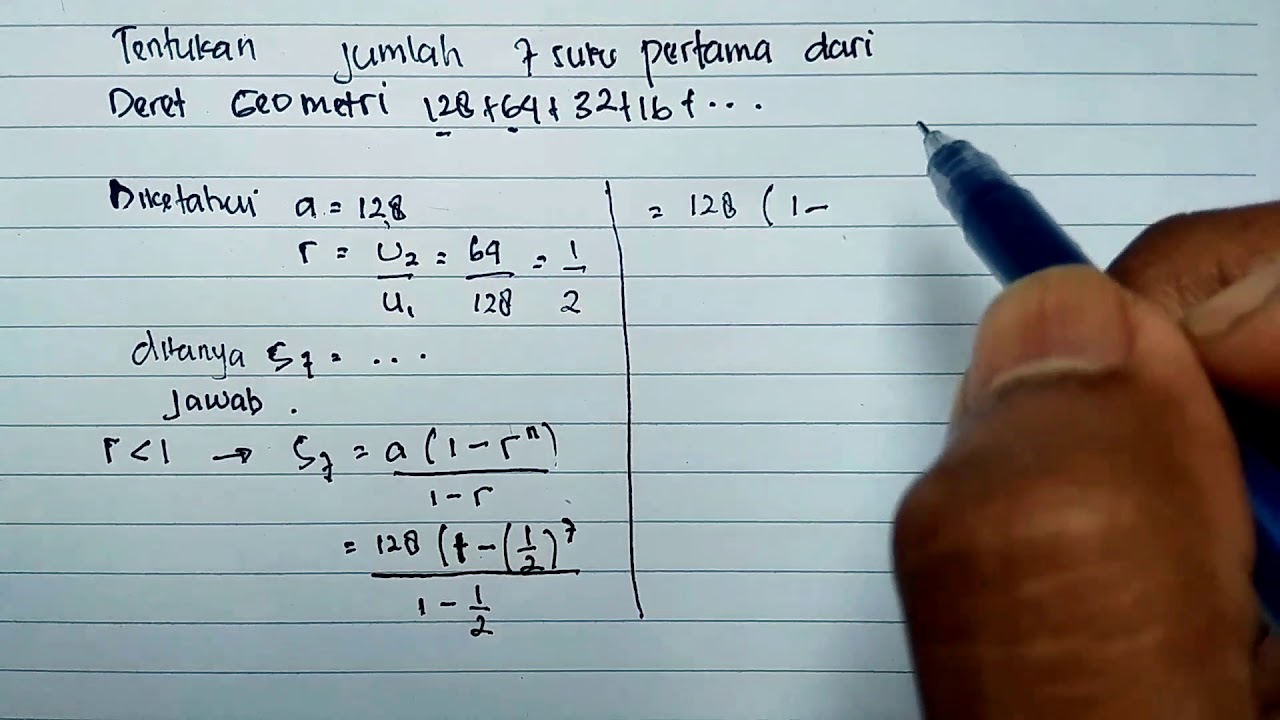 Tentukan jumlah 7 suku pertama dari
Deret Geometri 128+64+32+16+...
Diketahui a = 128
r = U2/U1 = 64/128 = 1/2
ditanya S7 = ...
Jawab .
r<1 → S7 = a(1-r^n)/1-r
= 128(1-(1/2)^7/1-1/2
= 128 (1-